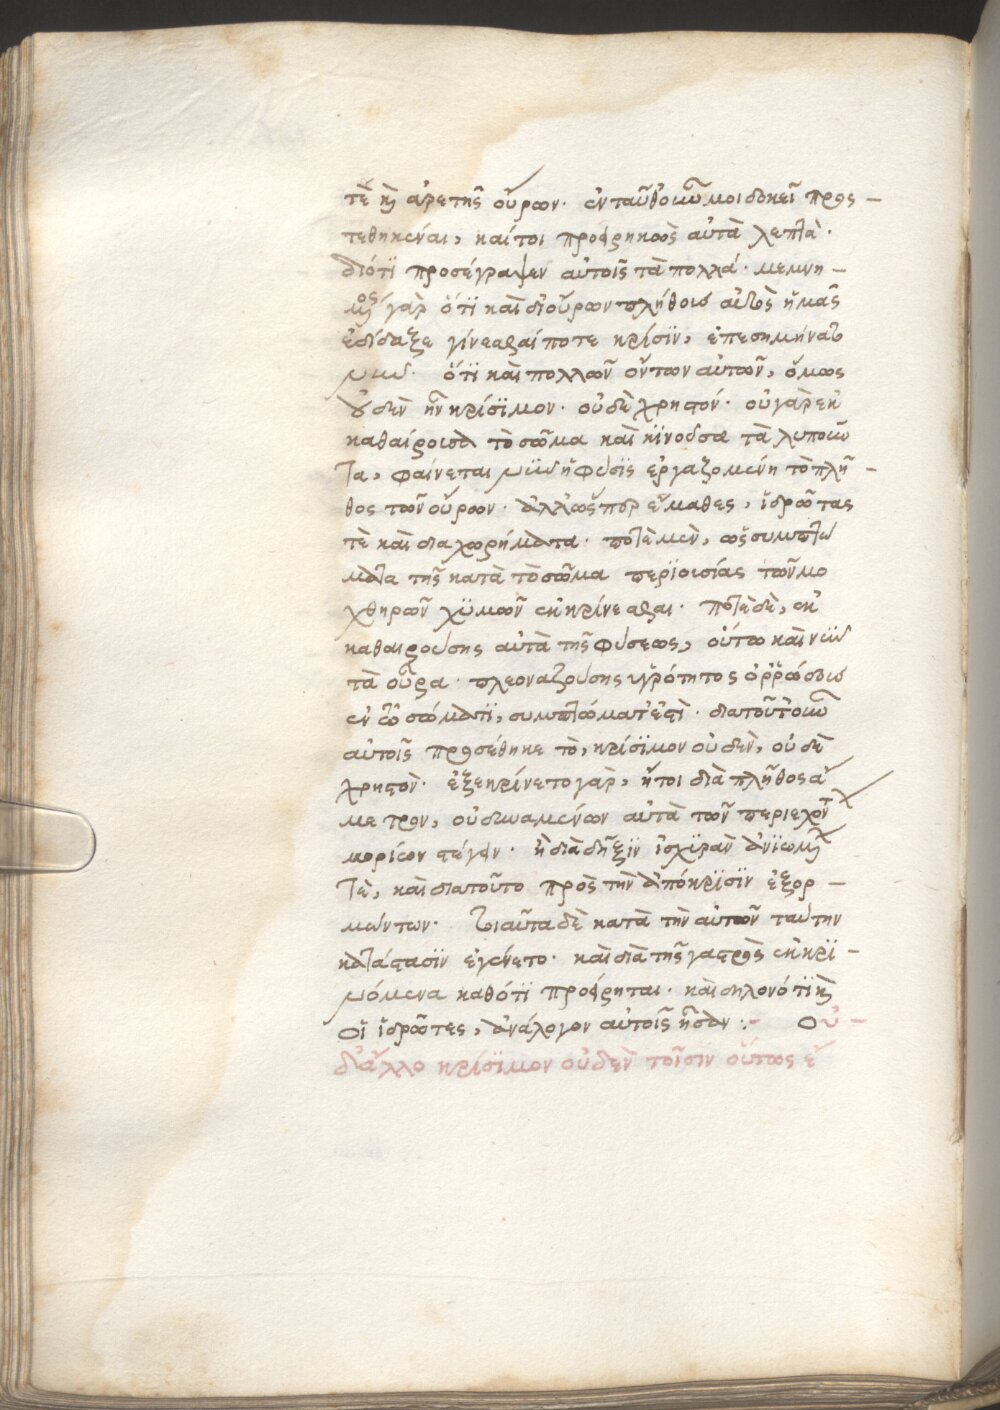 τὲ καὶ ἀρετῆς οὔρων· ἐνταῦθ οὖν μοι δοκεῖ προς –
τεθηκέναι, καίτοι προειρηκὼς αὐτὰ λεπτὰ·
διότϊ προσέγραψεν αὐτοῖς τὰ πολλά· μεμνη –
μένος γὰρ ὅτϊ καὶ δι οὔρων πλήθους αὐτὸς ἡμᾶς
ἐδίδαξε γίνεσθαί ποτε κρίσϊν, ἐπεσημήνατο
νῦν· ὅτϊ καὶ πολλῶν ὄντων αὐτῶν, ὅμως
οὐδὲν ἦν κρίσϊμον· οὐδὲ χρηστόν· οὐ γὰρ ἐκ
καθαίρουσα τὸ σῶμα καὶ κϊνοῦσα τὰ λυποῦν
τα, φαίνεται νῦν ἡ φύσϊς ἐργαζομένη τὸ πλῆ –
θος τῶν οὔρων· ἀλλ ὥσπερ ἔμαθες, ἱδρῶτας
τὲ καὶ διαχωρήματα· ποτὲ μὲν, ὡς συμπτώ
ματα τῆς κατὰ τὸ σῶμα περϊουσίας τῶν μο
χθηρῶν χϋμῶν ἐκκρίνεσθαι· ποτὲ δὲ, ἐκ
καθαιρούσης αὐτὰ τῆς φύσεως, οὕτω καὶ νῦν
τὰ οὖρα· πλεοναζούσης ὑγρότητος ὀρρώδους
ἐν τῶ σώματϊ, συμπτώματ ἐστὶ· διατοῦτ οὖν
αὐτοῖς προσέθηκε τὸ, κρίσϊμον οὐδὲν, οὐδὲ
χρηστὸν· ἐξεκρίνετο γὰρ, ἤτοι διὰ πλῆθος ἄ
μετρον, οὐ δυναμένων αὐτὰ τῶν περιεχόντ
μορίων στέγειν· ἢ διὰ δῆξϊν ἰσχϋρὰν ἀνϊωμέν
τε, καὶ διατοῦτο πρὸς τὴν ἀπόκρϊσϊν ἐξορ –
μώντων· τοιαῦτα δὲ κατὰ τὴν αὐτῶν ταύτην
κατάστασϊν ἐγένετο· καὶ διὰ τῆς γαστρὸς ἐκκρϊ –
νόμενα καθότϊ προείρηται· καὶ δηλονότϊ καὶ
οἱ ἱδρῶτες, ἀνάλογον αὐτοῖς ἦσαν :– Οὐ –
δ ἄλλο κρίσϊμον οὐδὲν τοῖσιν οὕτως ἔ